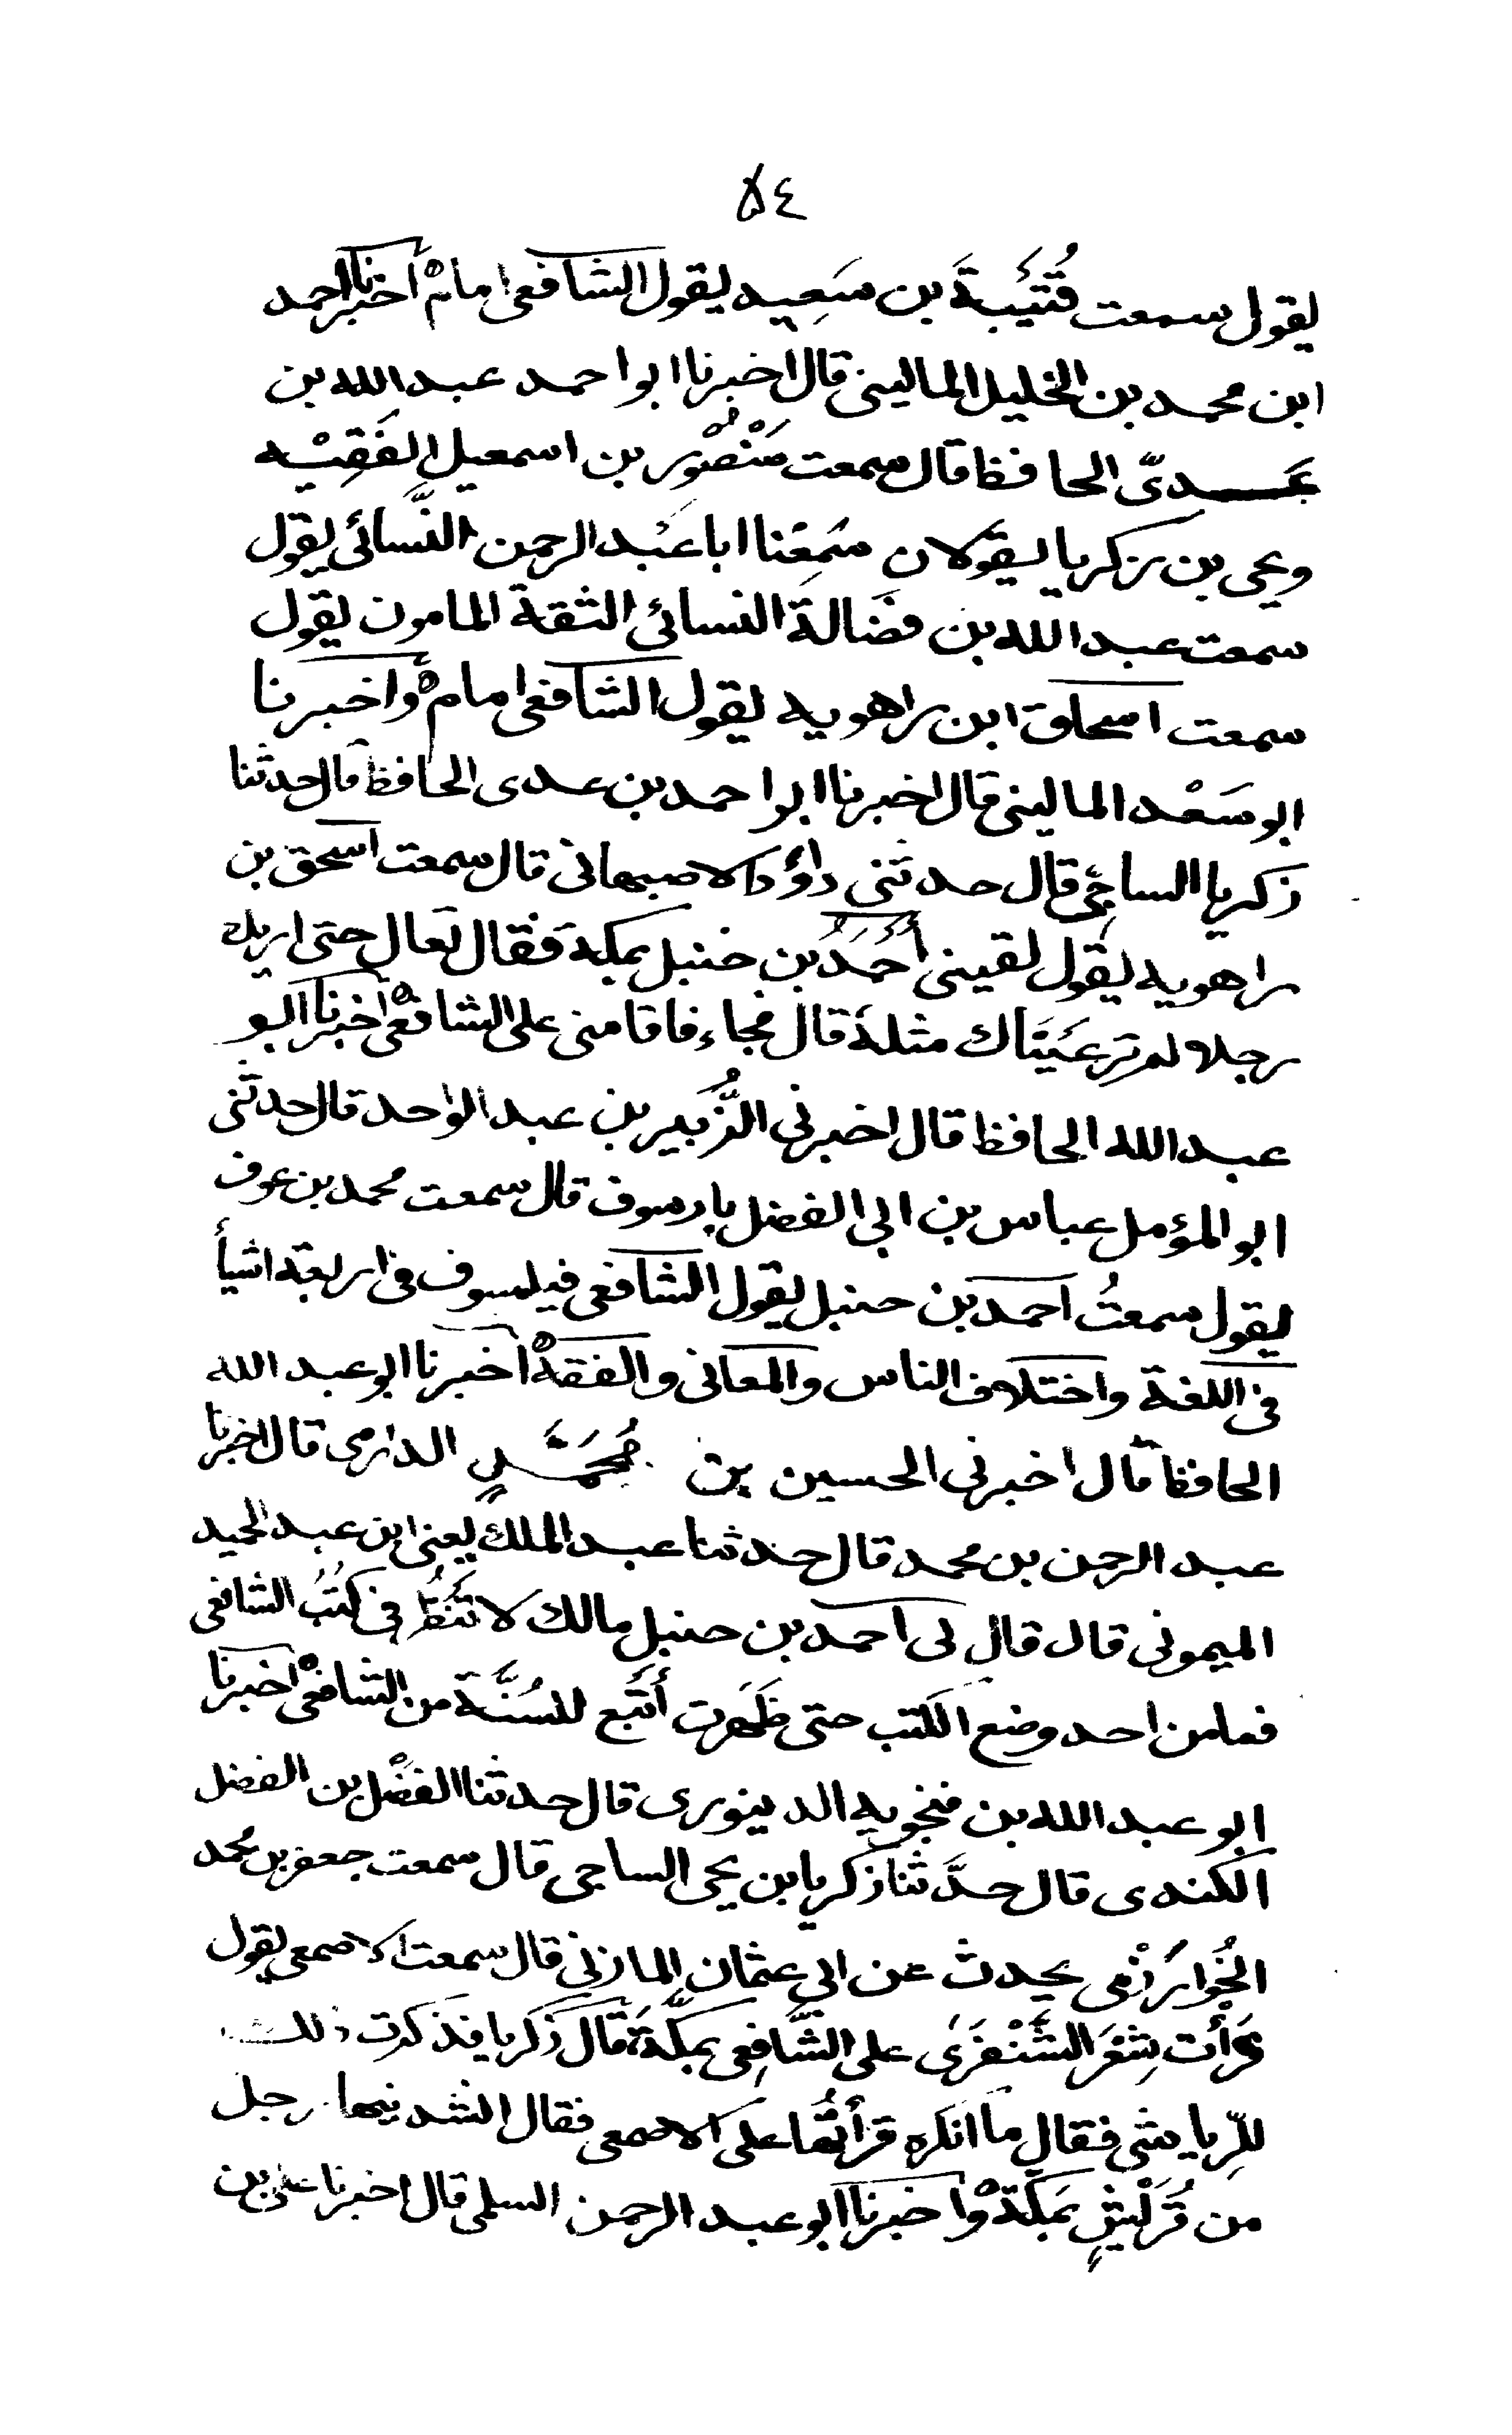 ٥٤
يقول سمعت قُتَيْبَةَ بن سَعِيد يقول الشافعى امام أخبرنا احمد
ابن محمد بن الخليل المالينى قال اخبرنا ابو احمد عبد الله بن
عَدىّ الحافظ قال سمعت مَنْصُور بن اسمعيل الفَقِيْه
ويحى بن زكريا يقولان سَمِعْنا ابا عَبْد الرحمن النَّسائى يقول
سمعت عبد الله بن فضَالةَ النسائى الثقة المامون يقول
سمعت اسحاق ابن راهويه يقول الشافعى امام واخبرنا
ابو سَعْد المالينى قال اخبرنا ابو احمد بن عدى الحافظ قال حدثنا
زكريا الساجى قال حدثنى داؤد الاصبهانى قال سمعت اسحق بن
راهويه يقول لقينى أَحْمَدُ بن حنبل بمكة فقال تَعال حتى اريك
رجلا لم تر عَيْنَاك مثلهَ قال فجاء فاقامنى على الشافعى اخبرنا ابو
عبد الله الحافظ قال اخبرنى الزُّبَير بن عبد الواحد قال حدثنى
ابو المؤمل عباس بن ابى الفضل بارسوف قال سمعت محمد بن عوف
يقول سمعتُ احمد بن حنبل يقول الشافعى فيلسوف فى اربعة اشيأ
فى اللغة واختلاف الناس والمعانى والفقه اخبرنا ابو عبد الله
الحافظ قال اخبرنى الحسين بن مُحَمَّدٍ الدارمى قال اخبرنا
عبد الرحمن بن محمد قال حدثنا عبد الملك يعنى ابن عبد الحميد
الميمونى قال قال لى احمد بن حنبل مالك لا تَنْظُر فى كُتُبُ الشافعى
فما من احد وضع الكتب حتى ظَهَرت أَتْبَع للسُنَّة من الشافعى اخبرنا
ابو عبد الله بن فنجويه الدينورى قال حدثنا الفَضْل بن الفضل
الكندى قال حدَّثنا زكريا بن يحى الساجى قال سمعت جعفر بن محمد
الخُوارَزْمى يحدث عن ابى عثمان المازنى قال سمعت الاصمعى يقول
قرَأت شِعْرَ الشَّنْفَرَى على الشَّافِعِى بمكَّةَ قال زكريا فذكرت ذلك
للرِّياشى فقال ما انكره قرأتُها على الاصمعى فقال انشدنيها رجل
من قُرَيْشٍ بمَكَّةَ واخبرنا ابو عبد الرحمن السلمى قال اخبرنا على بن